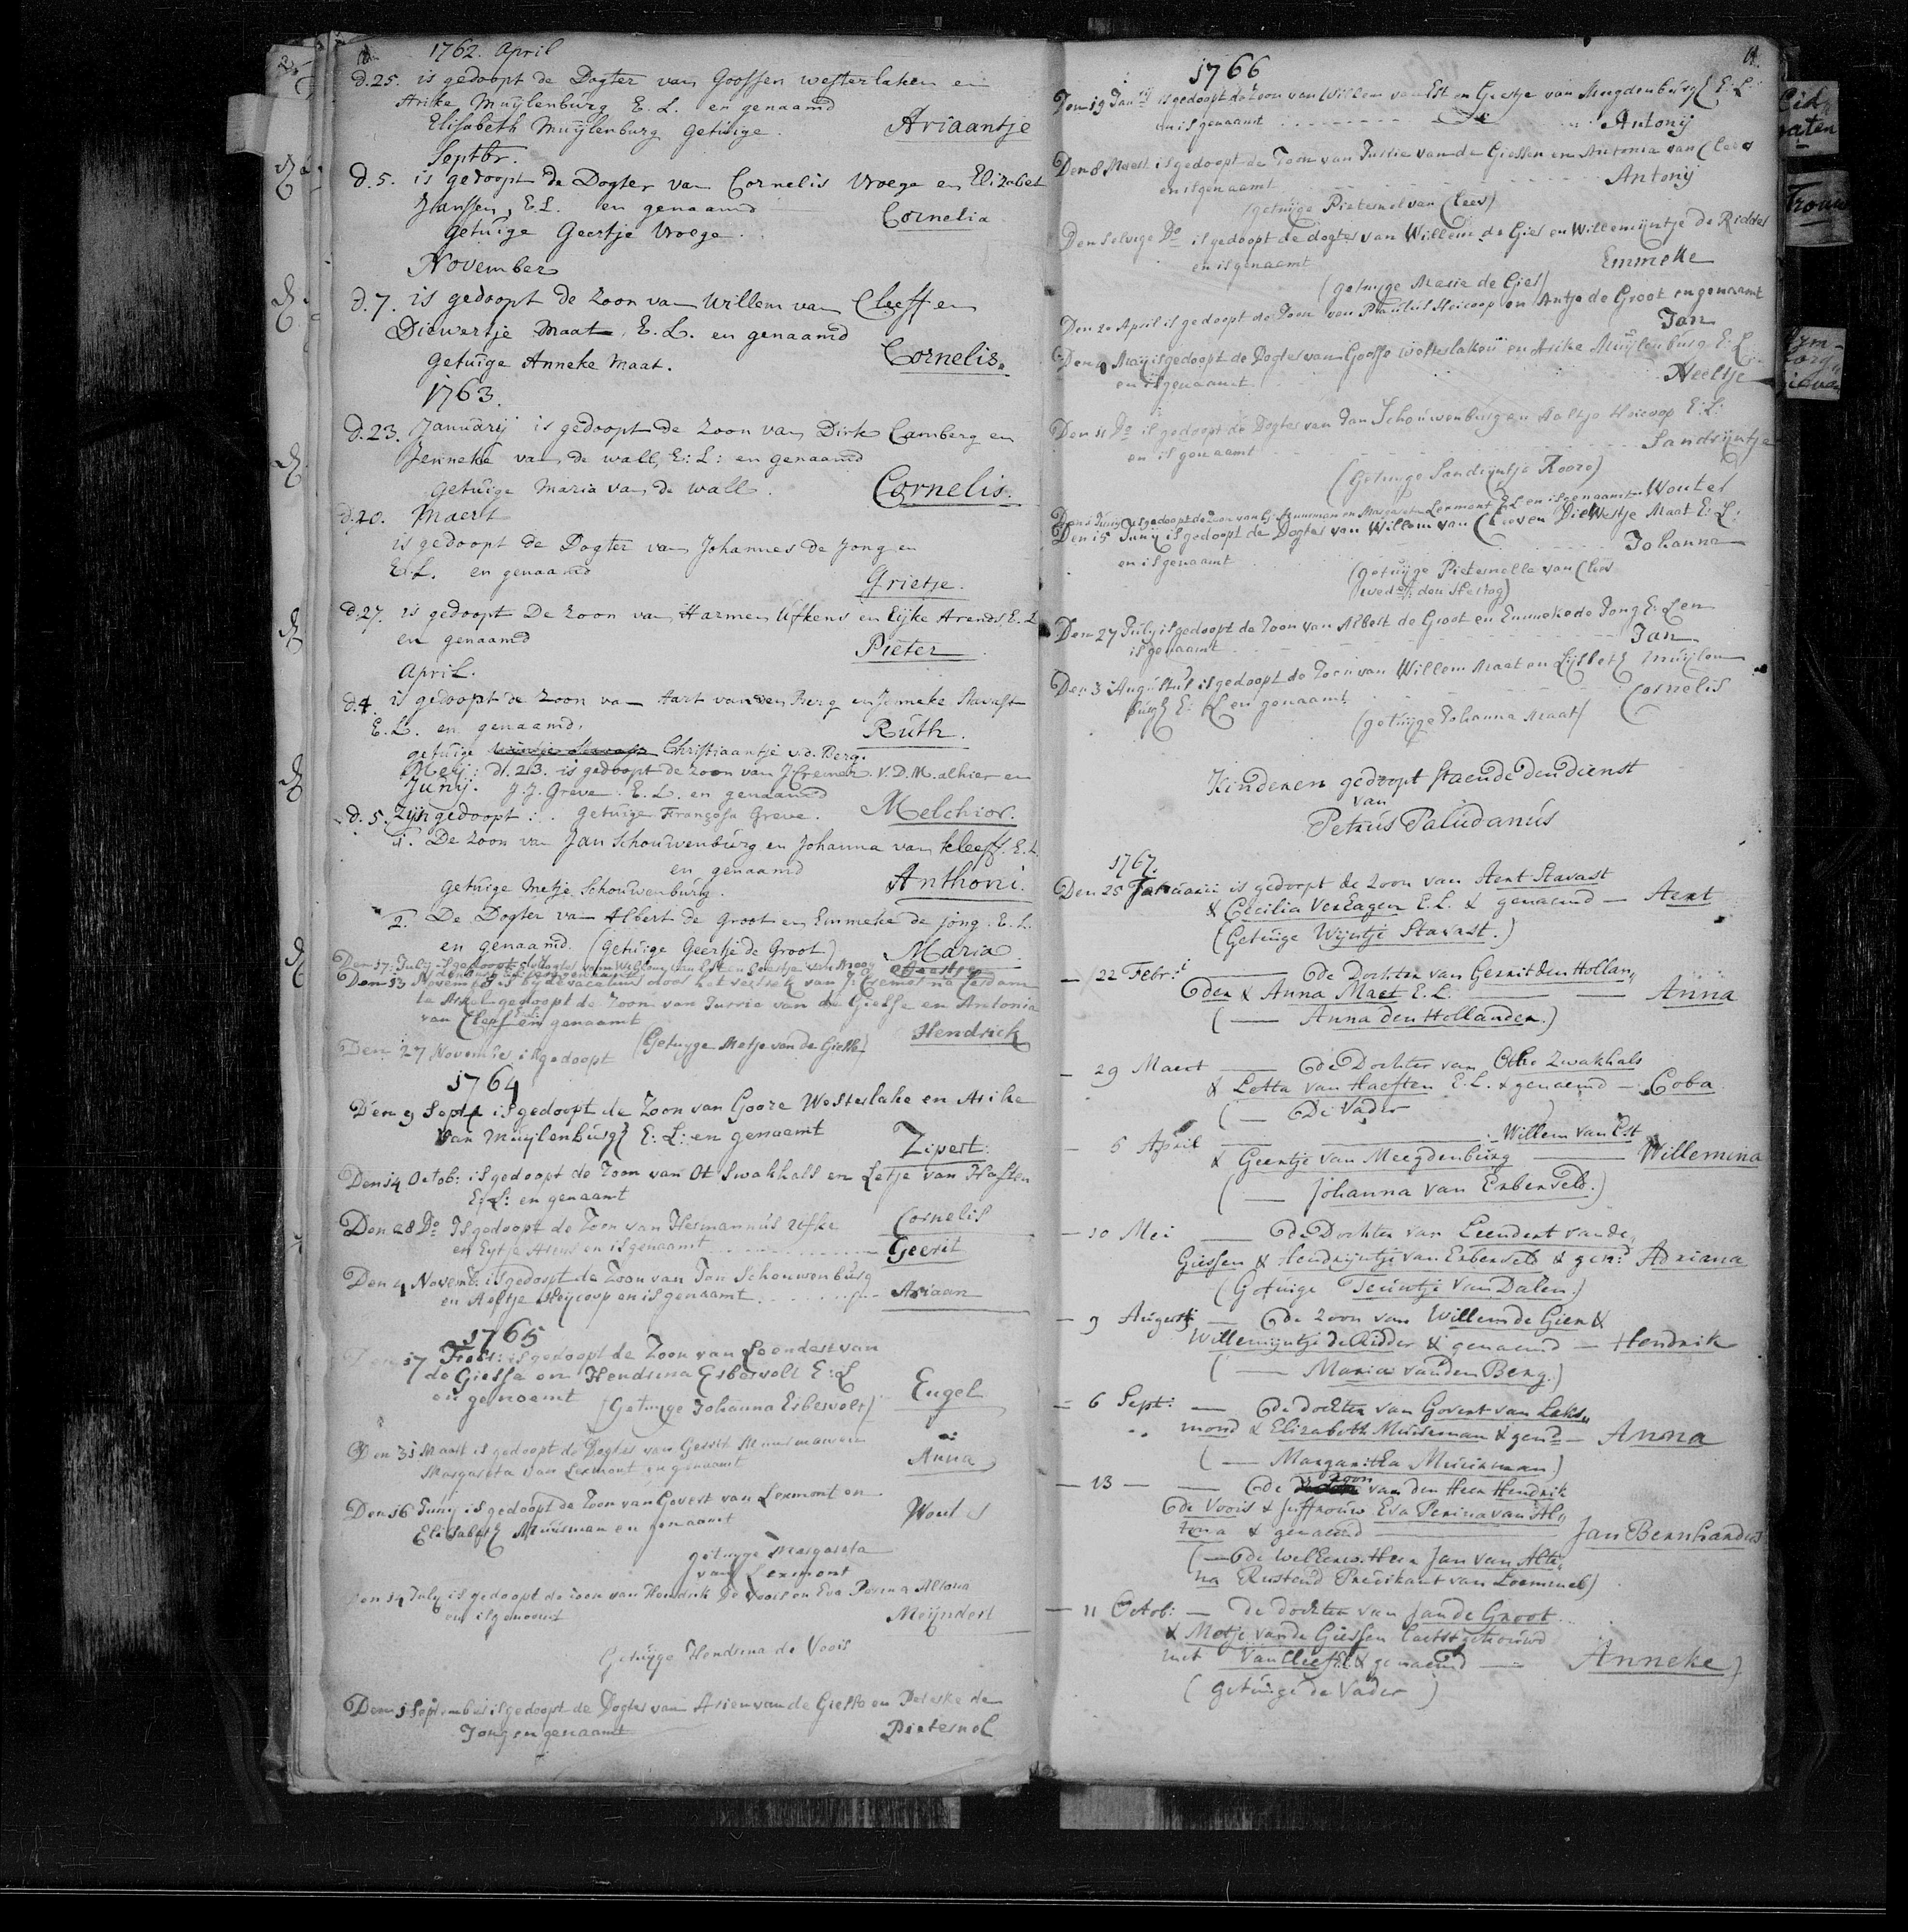 1762. April
d. 25. is gedoopt de Dogter van Goossen westerlaken en
Arike Muijlenburg E. L. en genaamd
Elisabeth Muijlenburg getuige. Ariaantje
Septbr.
d. 5. is gedoopt de Dogter van Cornelis Vroege en Elizabet
Janssen, E.L. en genaamd Cornelia
getuige Geertje Vroege.
November
d. 7. is gedoopt de zoon van Willem van Cleeff en
Diewertje Maat. E. L. en genaamd
getuige Anneke Maat. Cornelis.
1763.
d. 23. Januarij is gedoopt de zoon van Dirk Camberg en
Jenneke van de wall, E: L: en genaamd
getuige Maria van de wall. Cornelis.
d. 20. Maert
is gedoopt de Dogter van Johannes de Jong en
E.L. en genaamd
Grietje.
d. 27. is gedoopt De zoon van Harmen Ufkens en Eijke Arends. E. L.
en genaamd Pieter
April.
d. 4. is gedoopt de zoon van Aart van den Berg en Jenneke Stavast
E. L. en genaamd. Ruth.
getuige Christiaantje v.d. Berg.
Meij: d. 23. is gedoopt de zoon van J Cremer. V. D. M. alhier en
Junij. J. J. Greve. E. L. en genaamd
d. 5. Zijn gedoopt: getuige Françoisa Greve. Melchior.
1. De zoon van Jan Schouwenburg en Johanna van Kleeff. E. L.
en genaamd Anthoni.
getuige Metje Schouwenburg.
2. De Dogter van Albert de Groot en Emmeke de jong. E. L.
en genaamd. (getuige Geertje de Groot) Maria
Den 17: July is gedoopt de Dogter van Willem van Est en Geertje van
Den 13 November is bij de vacatuur door het vertrek van J: Cremer na
te Arkel gedoopt de Zoon van Jurrie van de Giesse en Antonia
van Cleef E:L: en genaamt Hendrick
(Getuyge Metje van de Giesse)
Den 27 November is gedoopt
1764
Den 9 Septr is gedoopt de Zoon van Goore Westerlake en Arike
Van Muijlenburg E: L: en genaamt
Zipert:
Den 14 Octob: is gedoopt de Zoon van Ot Swakhals en Letje van Haften
E: L: en genaamt
Cornelis
Den 28 Do Is gedoopt de Zoon van Hermannus Ufke
en Eytje Arens en is genaamt Geerit
Den 4 Novemb: is gedoopt de Zoon van Jan Schouwenburg
en Aeltje Heycoop en is genaamt Ariaan
1765
Den 17 Febr: is gedoopt de Zoon van Leendert van
de Giessa en Hendrina Erbervelt E: L
en genoemt (Getuyge Johanna Erbervelt) Engel
Den 31 Maart is gedoopt de Dogter van Gerrit Muurman en
Margareta van Lexmont en genaamt Anna
Den 16 Juny is gedoopt de Zoon van Govert van Lexmont en
Elisabeth Muurman en genaamt Wouter
getuyge Margareta
van Lexmont
Den 14 July is gedoopt de zoon van Hendrik De Voois en Eva Perina Altona
en is genoemt Meijndert
Getuyge Hendrina de Voois
Den 1 September is gedoopt de Dogter van Arien van de Giesse en Peterke de
Jong en genaamt Pieternel
11.
1766
Den 19 Janrij is gedoopt de Zoon van Willem van Est en Geertje van Meegdenburg E: L:
en is genaamt Antonij
Den 8 Maert is gedoopt de Zoon van Jurrie van de Giessen en Antonia van Cleef
en is genaamt Antonij
(getuijge Pieternel van Cleef)
Den selvige Do is gedoopt de dogter van Willem de Gier en Willemijntje de Ridder
en is genaemt Emmeke
(getuyge Maria de Gier)
Den 20 April is gedoopt de Zoon van Paulus Heicoop en Antje de Groot en genaamt
Jan
Den Maij is gedoopt de Dogter van Goosse Westerlaken en Arike Muijlenburg E: L
en is genaamt Neeltje
Den 11 Do is gedoopt de Dogter van Jan Schouwenburg en Aaltje Heicoop E: L:
en is genaamt Sandrijntje
(Getuyge Sandrijntje Roore)
Den Junij is gedoopt de zoon van G: Muurman en Margareta Lexmont E:L en is genaamt Wouter
Den 15 Junij is gedoopt de Dogter van Willem van Cleef en Diewertje Maat E: L:
en is genaamt Johanna
(getuijge Pieternella van Cleef
wede den Hertog)
Den 27 July is gedoopt de Zoon van Albert de Groot en Emmeke de Jong E: L en
is genaamt Jan
Den 31 Augustus is gedoopt de Zoon van Willem Maat en Lijsbeth Muijlen
burg E: L en genaamt Cornelis
(getuijge Johanna Maat)
Kinderen gedoopt staende den dienst
van
Petrus Paludanus
1767.
Den 25 Januarii is gedoopt de zoon van Aert Stavast
& Cecilia Verhagen E.L. & genaemd — Aert
(Getuige Wijntje Stavast.)
— 22 Febr: — de Dochter van Gerrit den Hollan„
der & Anna Maet E.L. — Anna
(— Anna den Hollander.)
— 29 Maert — de Dochter van Otho Zwakhals
& Letta van Haeften E.L. & genaemd — Coba
(— De Vader
— 5 April — Willem van Est
& Geertje van Meegdenburg — Willemina
(— Johanna van Erberveld.)
— 10 Mei — de Dochter van Leendert vande„
Giessen & Hendrijntje van Erberveld & gen: Adriana
(Getuige Teuntje van Dalen.)
— 9 Augusti — de zoon van Willem de Gier &
Willemijntje de Ridder & genaemd — Hendrik
(— Maria vanden Berg.)
— 6 Sept: — de dochter van Govert van Leks„
mond & Elizabeth Muurman & gend — Anna
(— Margaritha Muurman)
— 13 — — de zoon van den Heer Hendrik
de Voois & Juffrouw Eva Perina van Al„
tena & genaemd — Jan Bernhardus
(— de welEerw. Heer Jan van Alte„
na Rustend Predikant van Loemmel)
— 11 Octob: — de dochter van Jan de Groot
& Metje vande Giessen laetst getrouwd
met Van Cleeff & genaemd — Anneke
(getuige de Vader)